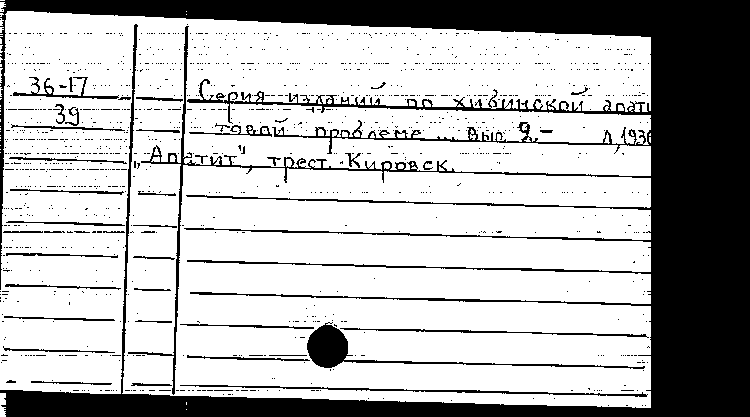 36-17
39
Серия изданий по хибинской апати
товой проблеме... Вып 2.- Л, 1930
„Апатит", трест. Кировск.